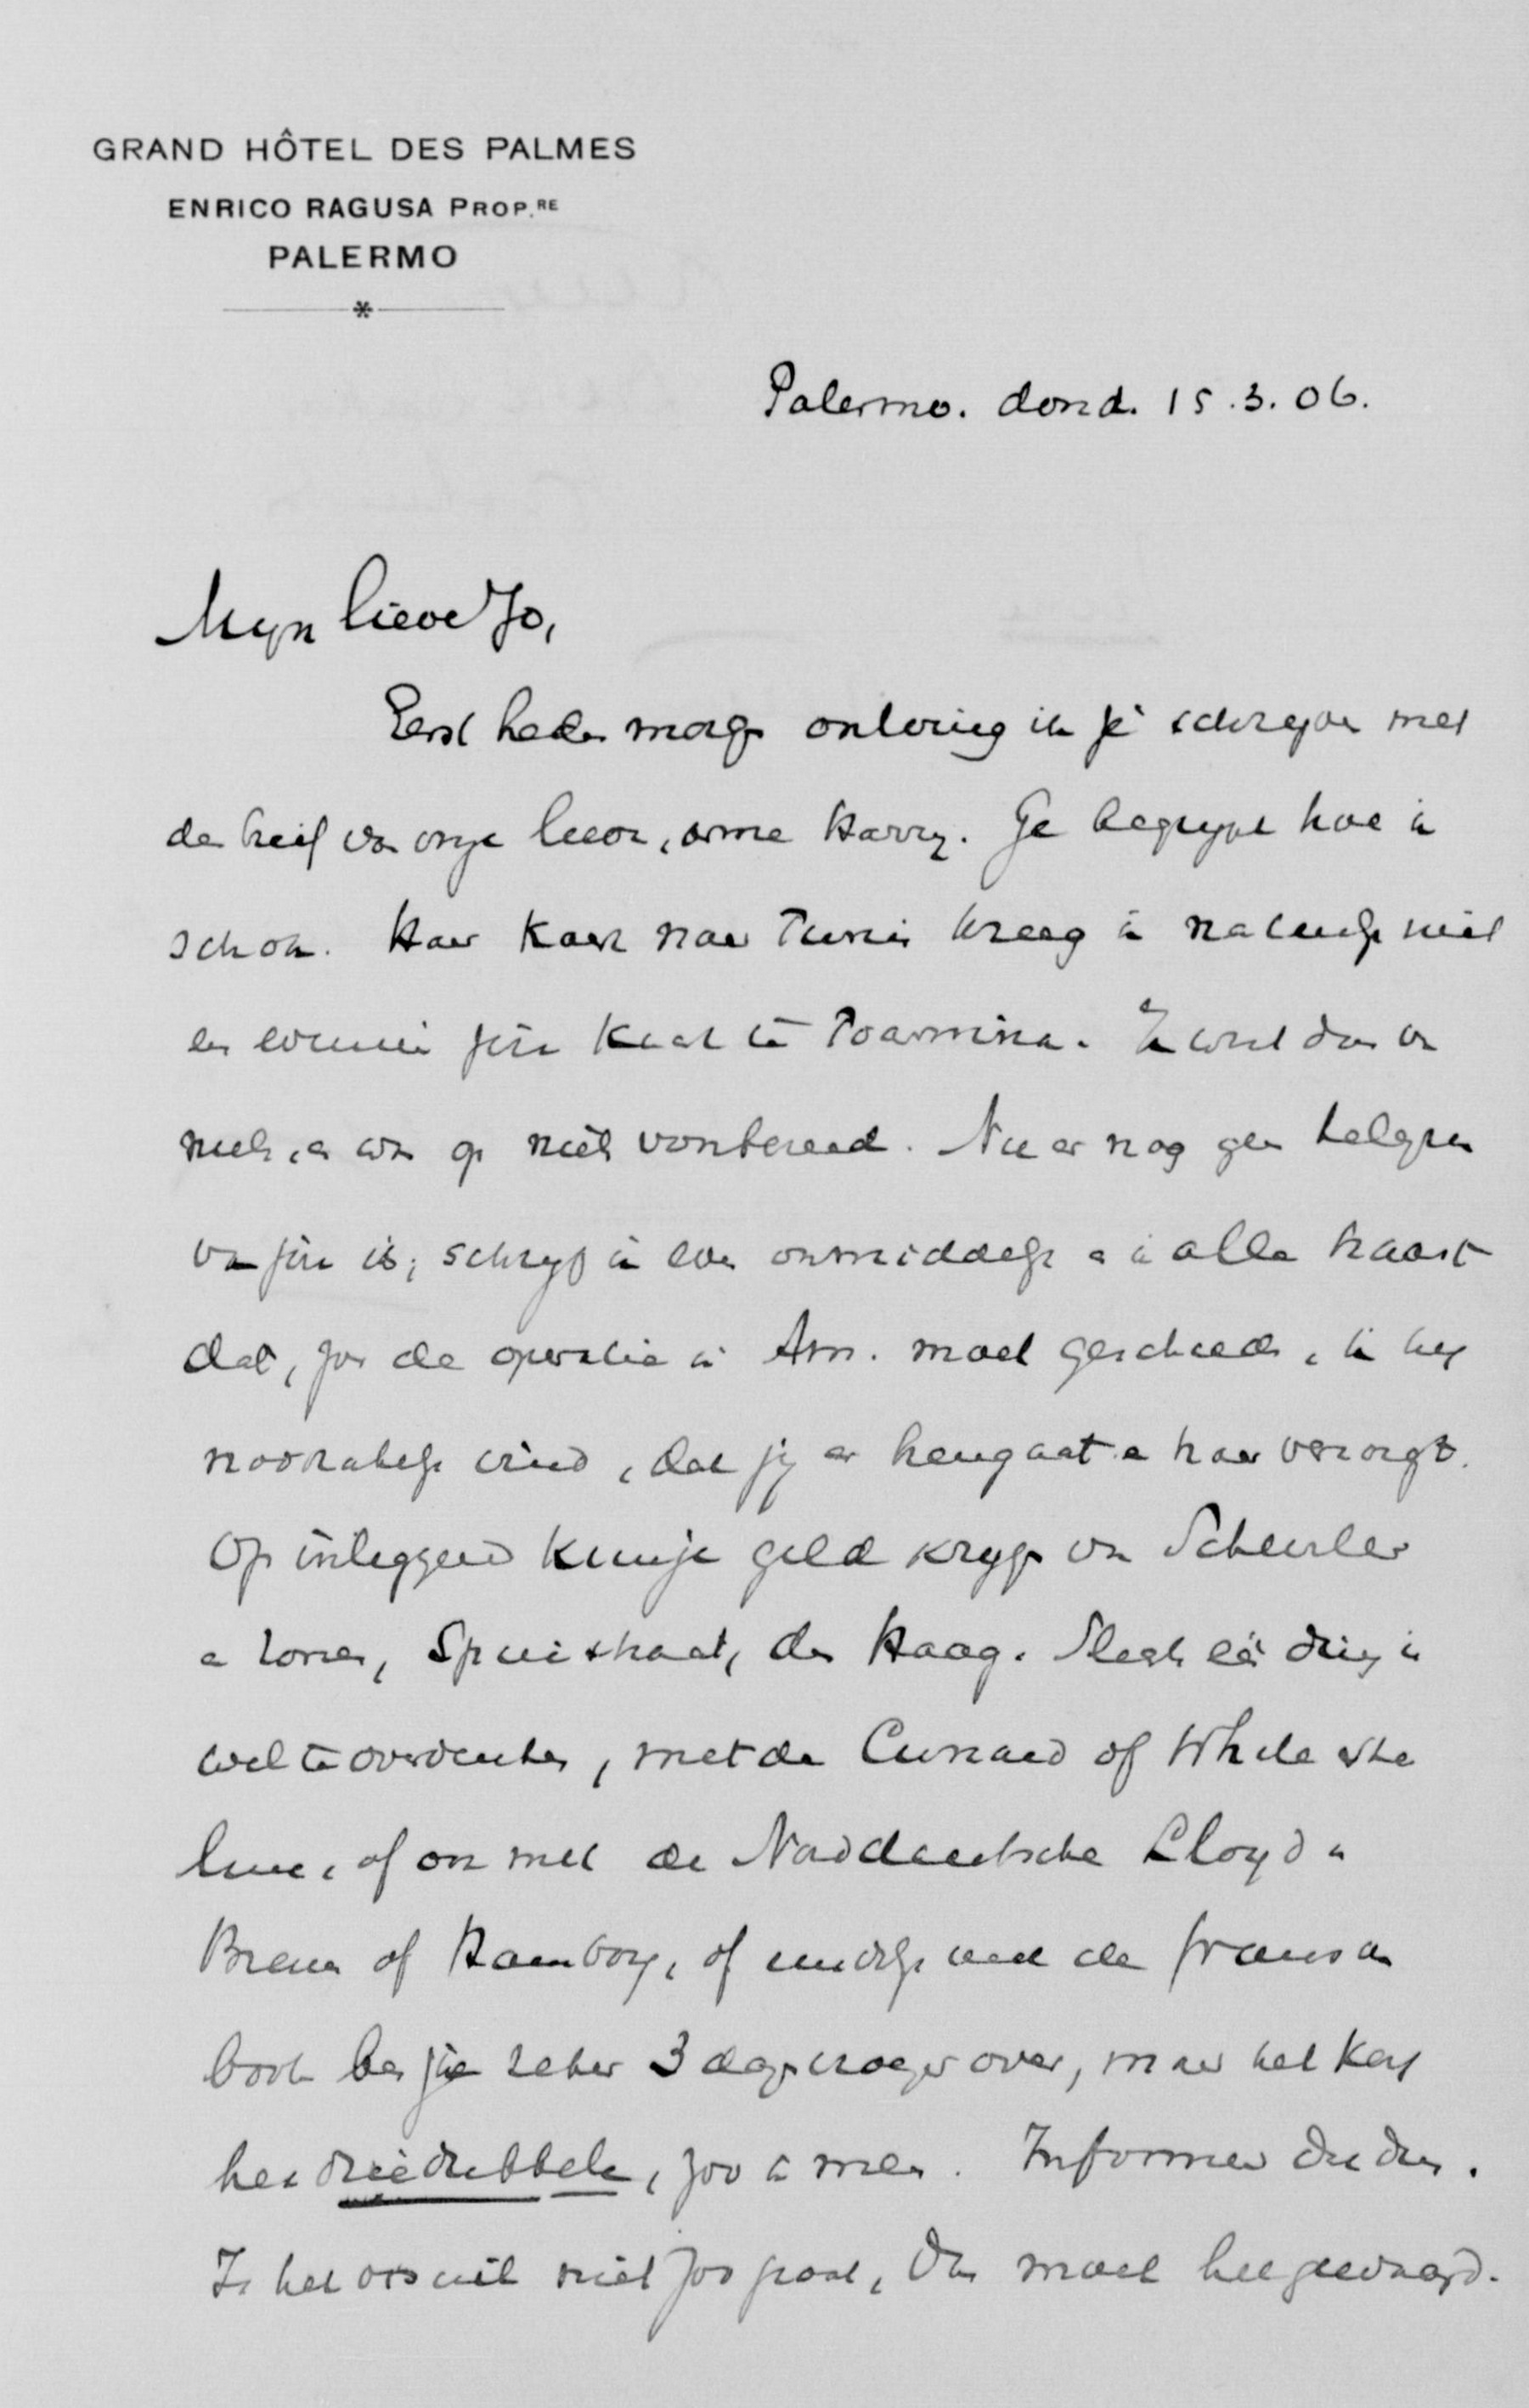 GRAND HÔTEL DES PALMES
ENRICO RAGUSA PROP.RE
PALERMO
Palermo. dond. 15.3.06.
Mijn lieve Jo,
Eerst heden morgen ontving ik je schrijven met
den brief van onze lieve, arme Harry. Ge begrijpt hoe ik
schok. Haar kaart naar Tunis kreeg ik natuurlijk niet
en evenmin jou kaart te Taormina. Ik wist dus van
niets, en was op niets voorbereid. Nu er nog geen telegram
van jou is, schrijf ik even onmiddelijk en in alle haast
dat, zoo de operatie in Am. moet geschieden, ik het
noodzakelijk vind, dat jij er heengaat en haar verzorgt.
Op inleggend kun je geld krijgen van Scheurleer
en zonen, Spuistraat, den Haag. Slechts één ding is
wel te overdenken, met de Cunard of White star
line, of ook met de Norddeutsche Lloyd van
Bremen of Hamborg, of eindelijk met de fransche
boot ben je zeker 3 dagen vroeger over, maar het kost
het driedubbele, zoo ik meen. Informeer dus dus.
Is het verschil niet zoo groot, dan moet het gewaagd.